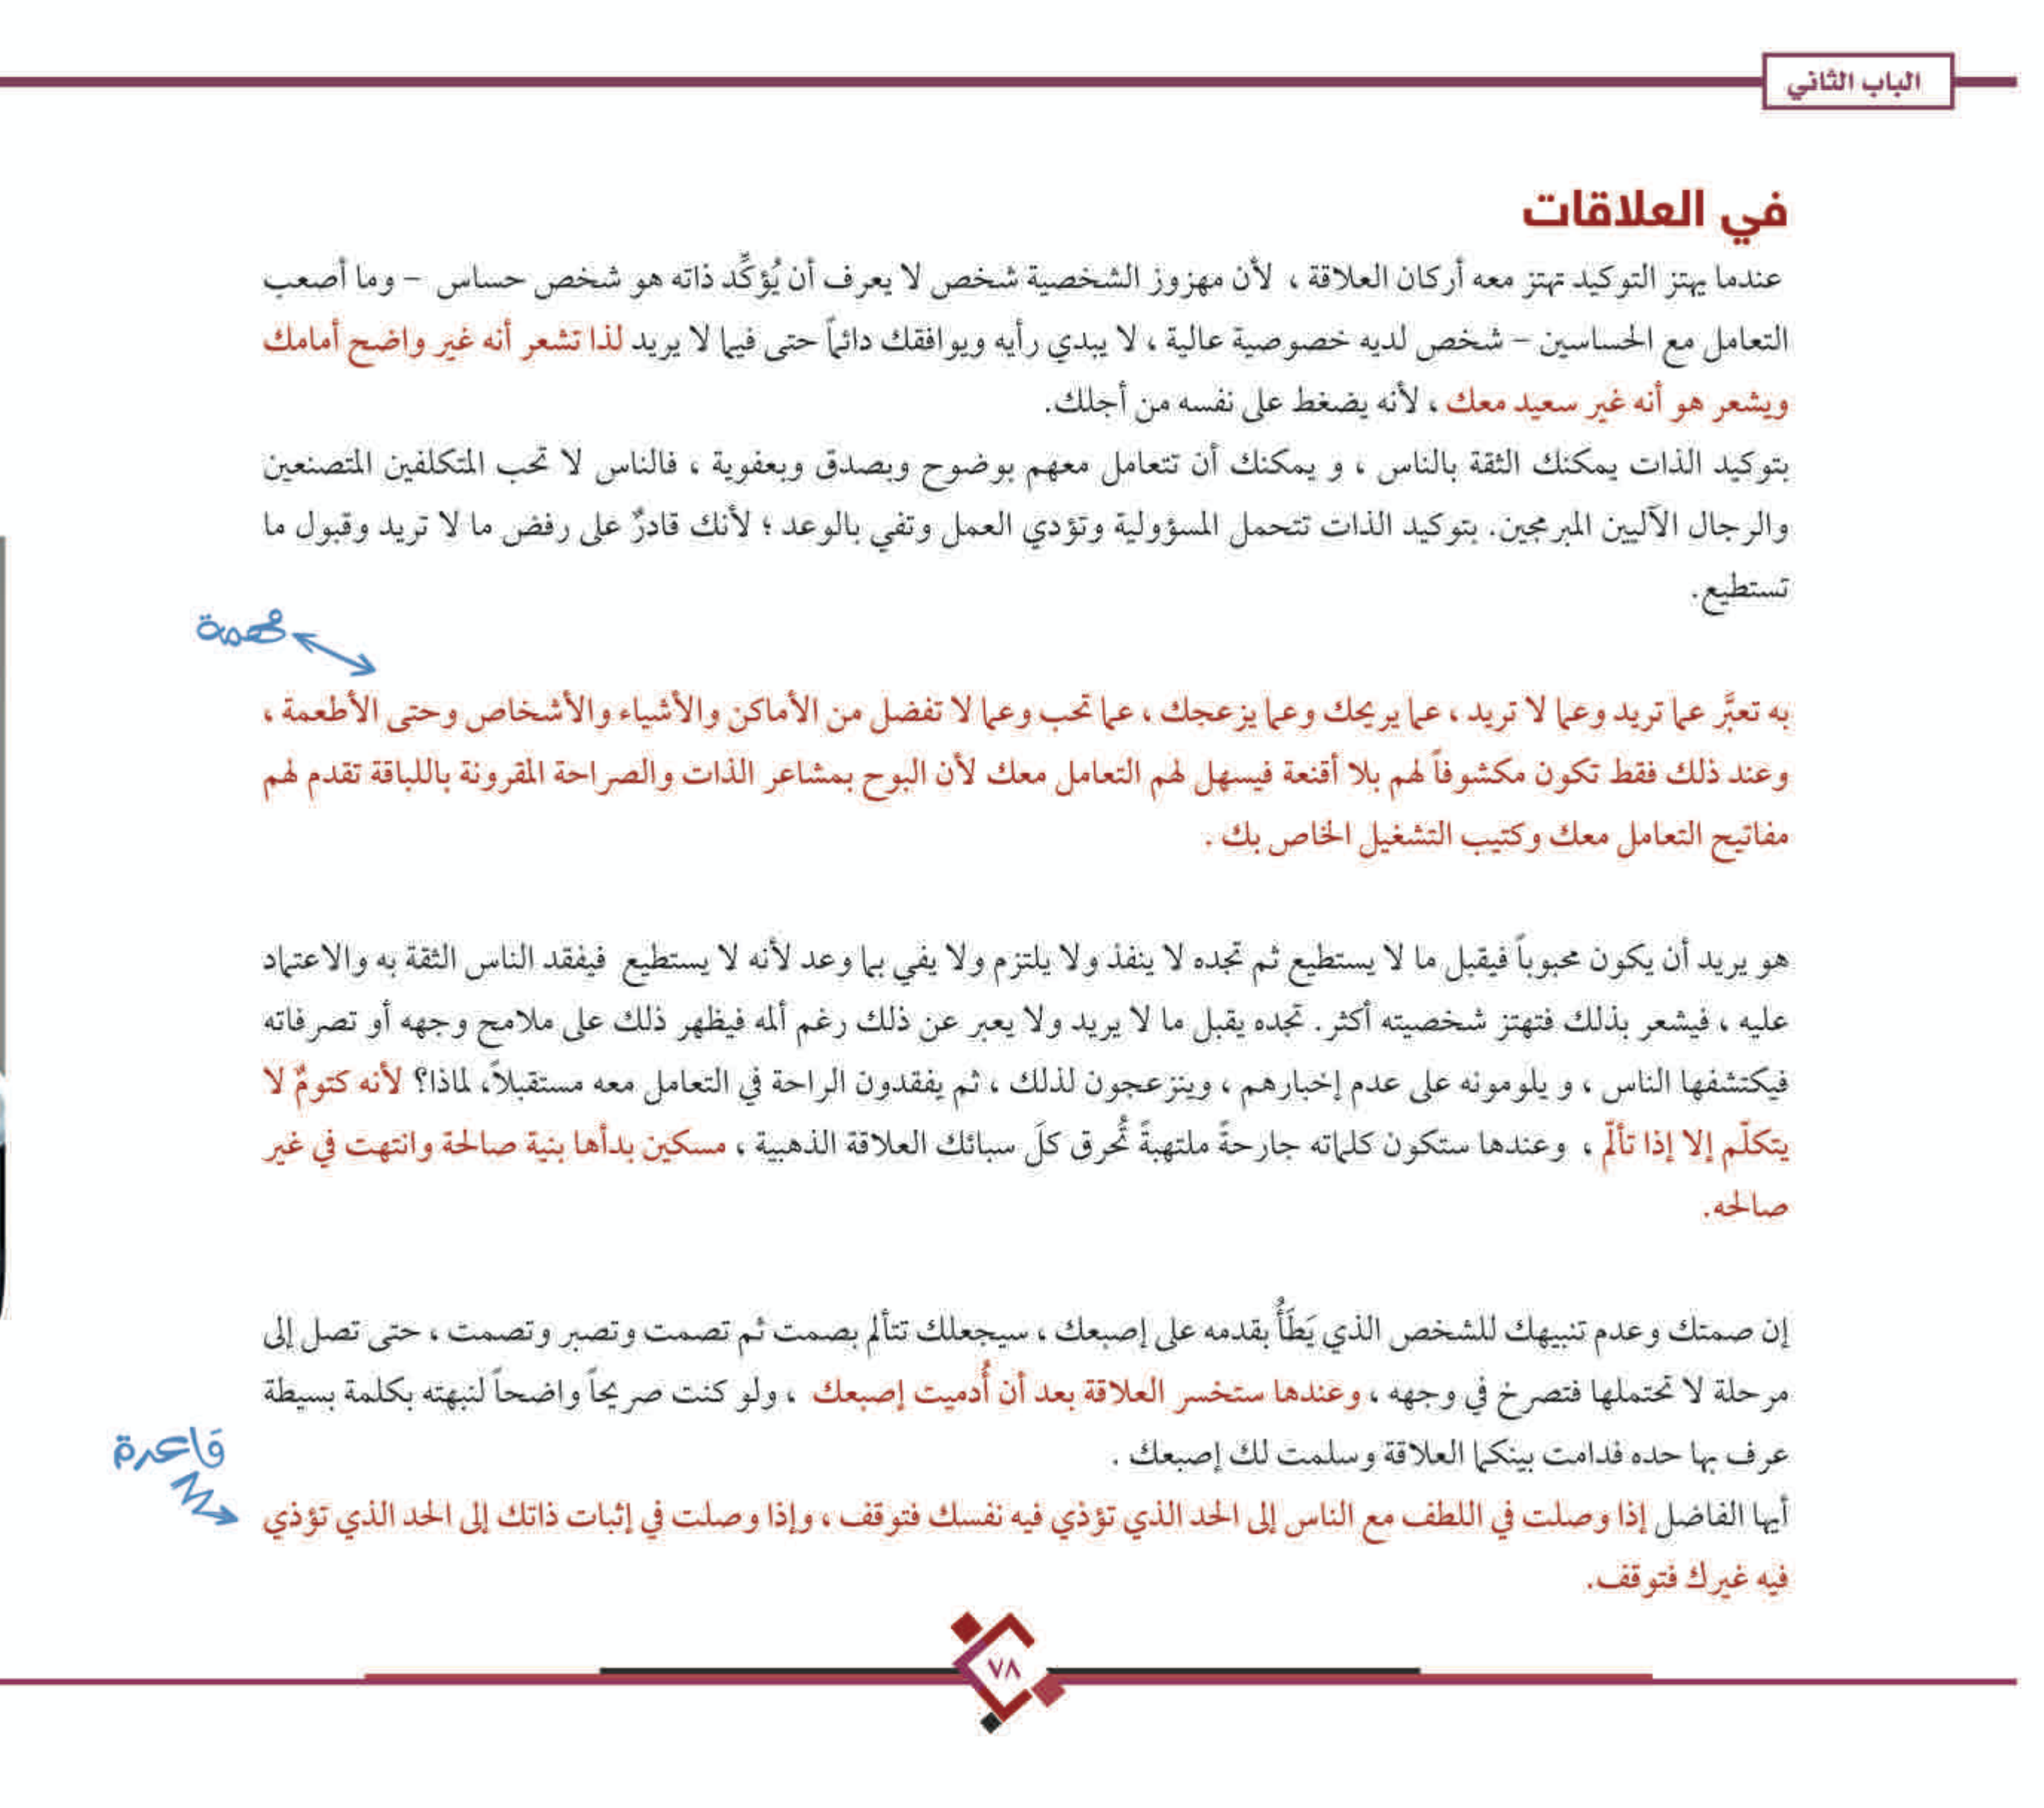 الباب الثاني
في العلاقات
عندما يهتز التوكيد تهتز معه أركان العلاقة ، لأن مهزوز الشخصية شخص لا يعرف أن يُؤكِّد ذاته هو شخص حساس – وما أصعب
التعامل مع الحساسين – شخص لديه خصوصية عالية ، لا يبدي رأيه ويوافقك دائماً حتى فيما لا يريد لذا تشعر أنه غير واضح أمامك
ويشعر هو أنه غير سعيد معك ، لأنه يضغط على نفسه من أجلك.
بتوكيد الذات يمكنك الثقة بالناس ، و يمكنك أن تتعامل معهم بوضوح وبصدق وبعفوية ، فالناس لا تحب المتكلفين المتصنعين
والرجال الآليين المبرمجين. بتوكيد الذات تتحمل المسؤولية وتؤدي العمل وتفي بالوعد ؛ لأنك قادرٌ على رفض ما لا تريد وقبول ما
تستطيع.
مهمة
به تعبَّر عما تريد وعما لا تريد ، عما يريحك وعما يزعجك ، عما تحب وعما لا تفضل من الأماكن والأشياء والأشخاص وحتى الأطعمة ،
وعند ذلك فقط تكون مكشوفاً لهم بلا أقنعة فيسهل لهم التعامل معك لأن البوح بمشاعر الذات والصراحة المقرونة باللباقة تقدم لهم
مفاتيح التعامل معك وكتيب التشغيل الخاص بك .
هو يريد أن يكون محبوباً فيقبل ما لا يستطيع ثم تجده لا ينفذ ولا يلتزم ولا يفي بما وعد لأنه لا يستطيع فيفقد الناس الثقة به والاعتماد
عليه ، فيشعر بذلك فتهتز شخصيته أكثر. تجده يقبل ما لا يريد ولا يعبر عن ذلك رغم ألمه فيظهر ذلك على ملامح وجهه أو تصرفاته
فيكتشفها الناس ، و يلومونه على عدم إخبارهم ، وينزعجون لذلك ، ثم يفقدون الراحة في التعامل معه مستقبلاً، لماذا؟ لأنه كتومٌ لا
يتكلّم إلا إذا تألّم ، وعندها ستكون كلماته جارحةً ملتهبةً تُحرق كلَ سبائك العلاقة الذهبية ، مسكين بدأها بنية صالحة وانتهت في غير
صالحه.
إن صمتك وعدم تنبيهك للشخص الذي يَطَأُ بقدمه على إصبعك ، سيجعلك تتألم بصمت ثم تصمت وتصبر وتصمت ، حتى تصل إلى
مرحلة لا تحتملها فتصرخ في وجهه ، وعندها ستخسر العلاقة بعد أن أُدميت إصبعك ، ولو كنت صريحاً واضحاً لنبهته بكلمة بسيطة
عرف بها حده فدامت بينكما العلاقة وسلمت لك إصبعك .
قاعدة
أيها الفاضل إذا وصلت في اللطف مع الناس إلى الحد الذي تؤذي فيه نفسك فتوقف ، وإذا وصلت في إثبات ذاتك إلى الحد الذي تؤذي
فيه غيرك فتوقف.
٧٨